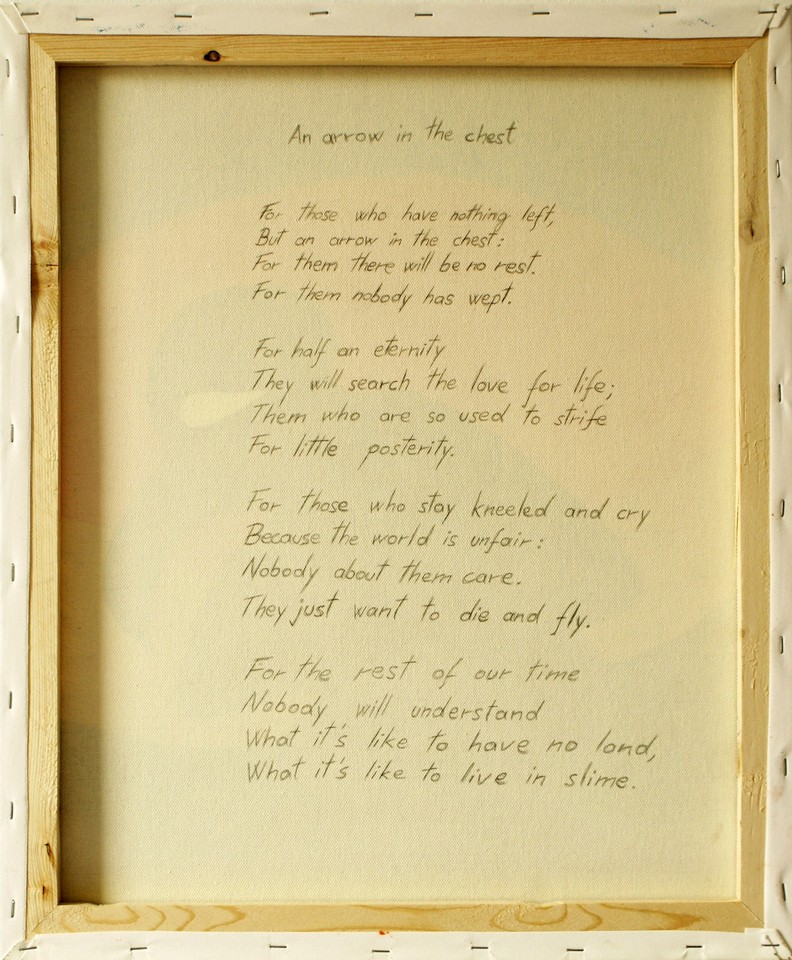 An arrow in the chest
For those who have nothing left,
But an arrow in the chest:
For them there will be no rest.
For them nobody has wept.
For half an eternity
They will search the love for life;
Them who are so used to strife
For little posterity.
For those who stay kneeled and cry
Because the world is unfair:
Nobody about them care.
They just want to die and fly.
For the rest of our time
Nobody will understand
What it's like to have no land,
What it's like to live in slime.